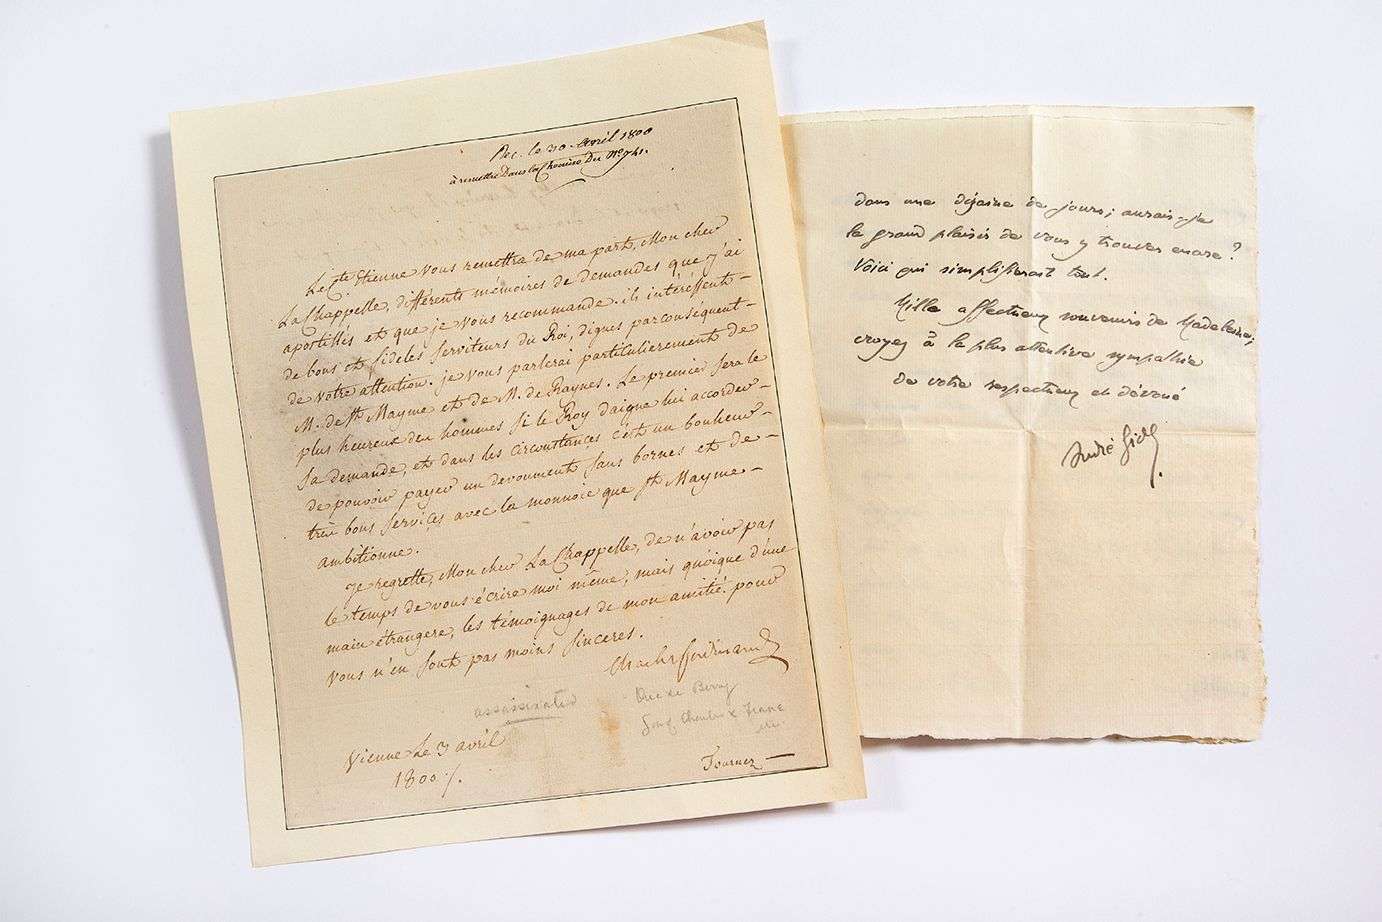 Rec. le 20. Avril 1800
à remettre Dans la Chemise Du Nº 741.
Le Cte. Etienne vous remettra de ma part, Mon cher
La Chappelle, différents mémoires de demandes que j'ai
apostillés et que je vous recommande. ils intéressent
de bons et fideles serviteurs du Roi, dignes par conséquent
de votre attention. je vous parlerai particulierement de
M. de St. Mayme et de M. de Raynes. Le premier sera le
plus heureux des hommes si le Roy daigne lui accorder
sa demande, et dans les circonstances c'est un bonheur
de pouvoir payer un dévouement sans bornes et de
très bons services avec la monnoie que St. Mayme
ambitionne.
Je regrette, Mon cher La Chappelle, de n'avoir pas
le temps de vous écrire moi même; mais quoique d'une
main étrangere, les témoignages de mon amitié pour
vous n'en sont pas moins sinceres.
Charles ferdinand
assassinated
Duc de Berry
son of Charles X France
Vienne Le 3 avril
1800 /.
Tournez —
dans une dizaine de jours; aurais-je
le grand plaisir de vous y trouver encore ?
Voici qui simplifierait tout.
Mille affectueux souvenirs de Madeleine;
croyez à la plus attentive sympathie
de votre respectueux et dévoué
André Gide.